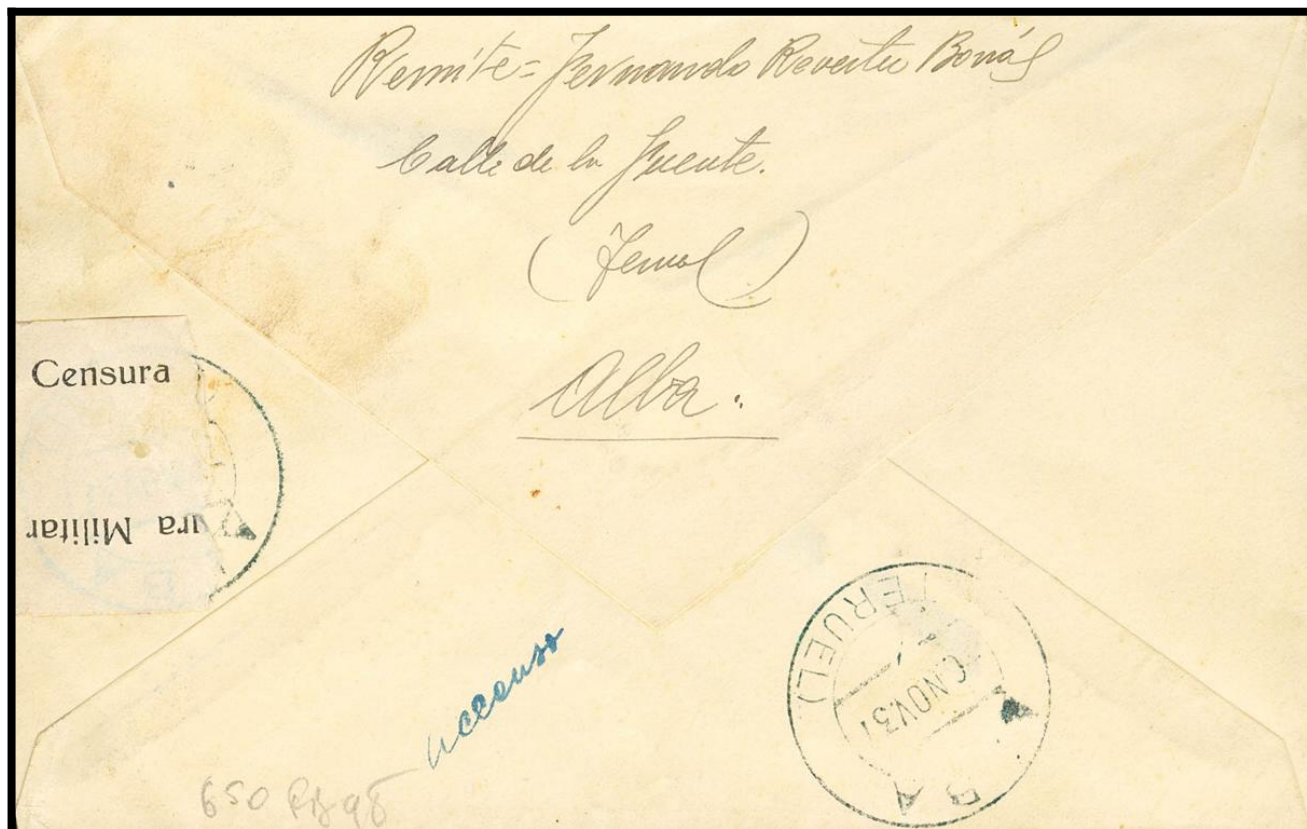 Remite = Fernando Reverter Bonás
Calle de la Fuente.
(Teruel)
Alba.
Censura
ura Militar
(TERUEL)
NOV.37
ALBA
650